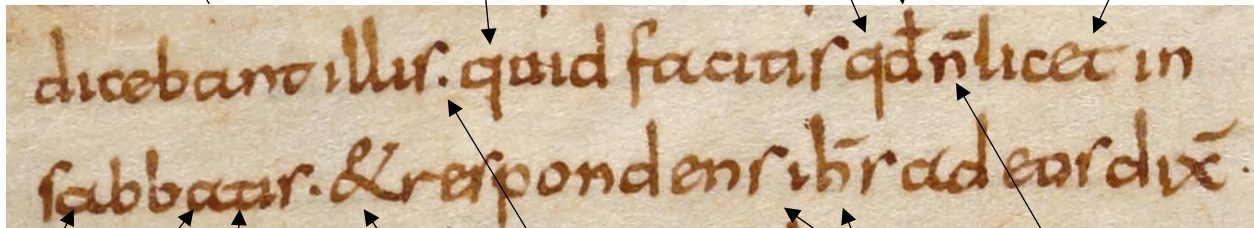 dicebant illis. quid facitis qd̄ n̄ licet in
sabbatis. & respondens ih̄s ad eos dix̄.